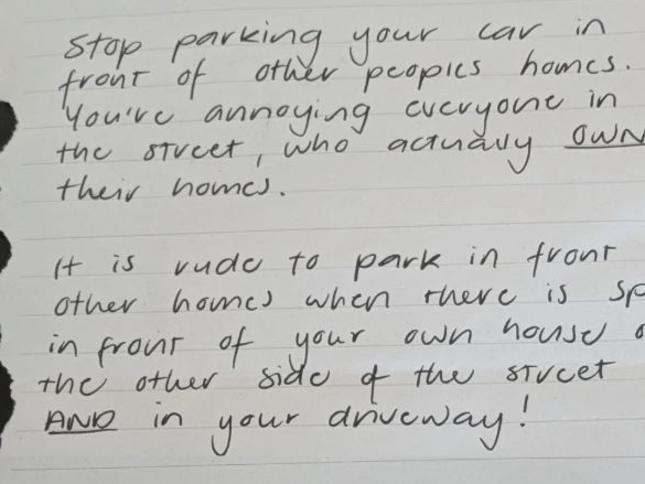 Stop parking your car in
front of other peoples homes.
You're annoying everyone in
the street, who actually OWN
their homes.
It is rude to park in front
other homes when there is sp
in front of your own house o
the other side of the street
AND in your driveway!